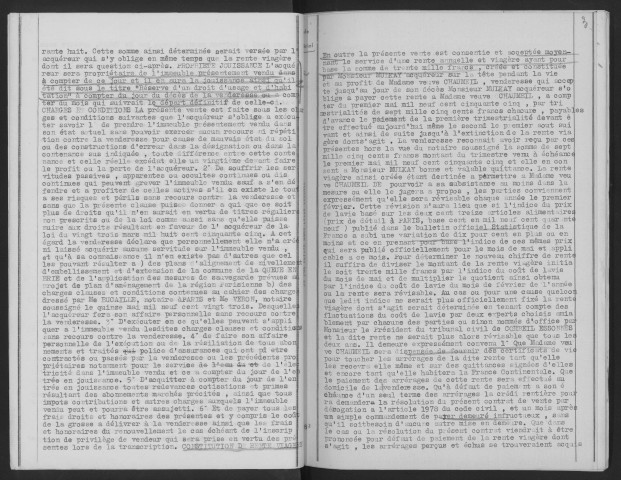 rente huit. Cette somme ainsi déterminée serait versée par l'
acquéreur qui s'y oblige en même temps que la rente viagère
dont il sera question ci-après. PROPRIETE JOUISSANCE L'acqué
reur sera propriétaire de l'immeuble présentement vendu dans
à compter de ce jour et il en aura la jouissance ainsi qu'il
été dit sous le titre "Réserve d'un droit d'usage et d'habi
tation" à compter du jour du décès de la venderesse ou à comp
ter du mois qui suivrait le départ définitif de celle-ci.
CHARGES ET CONDITIONS La présente vente est faite sous les cha
ges et conditions suivantes que l'acquéreur s'oblige à exécu
ter savoir 1° de prendre l'immeuble présentement vendu dans
son état actuel sans pouvoir exercer aucun recours ni répéti
tion contre la venderesse pour cause de mauvais état du sol
ou des constructions d'erreur dans la désignation ou dans la
contenance sus indiquée , toute différence entre cette conte
nance et celle réelle excédât elle un vingtième devant faire
le profit ou la perte de l'acquéreur. 2° De souffrir les ser
vitudes passives , apparentes ou occultes continues ou dis
continues qui peuvent grever l'immeuble vendu sauf à s'en dé
fendre et à profiter de celles actives s'il en existe le tout
à ses risques et périls sans recours contre la venderesse et
sans que la présente clause puisse donner à qui que ce soit
plus de droits qu'il n'en aurait en vertu de titres réguliers
non prescrits ou de la loi comme aussi sans qu'elle puisse
nuire aux droits résultant en faveur de l' acquéreur de la
loi du vingt trois mars mil huit cent cinquante cinq. A cet
égard la venderesse déclare que personnellement elle n'a créé
ni laissé acquérir aucune servitude sur l'immeuble vendu ,
et qu'à sa connaissance il n'en existe pas d'autres que cel
les pouvant résulter a ) des plans d'alignement de nivellement
d'embellissement et d'extension de la commune de la QUEUE EN
BRIE et de l'adoption des mesures de sauvegarde prévues au
projet de plan d'aménagement de la région parisienne b) des
charges clauses et conditions contenues au cahier des charges
dressé par Me notaire à PARIS et Me VENON, notaire
soussigné le quinze mai mil neuf cent vingt trois. Desquelles
l'acquéreur fera son affaire personnelle sans recours contre
la venderesse. 3° D'exécuter en ce qu'elles peuvent s'appli
quer à l'immeuble vendu lesdites charges clauses et conditions
sans recours contre la venderesse. 4° de faire son affaire
personnelle de l'exécution ou de la résiliation de tous abon
nements et traités police d'assurances qui ont pu être
contractés ou passés par la venderesse ou les précédents pro
priétaires notamment pour le service de l'eau et de l'élec
tricité dans l'immeuble vendu et ce à compter du jour de l'en
trée en jouissance. 5° D'acquitter à compter du jour de l'en
trée en jouissance toutes redevances cotisations et primes
résultant des abonnements marchés précités , ainsi que tous
impôts contributions et autres charges auxquels l'immeuble
vendu peut et pourra être assujetti. 6° Et de payer tous les
frais droits et honoraires des présentes et y compris le coût
de la grosse à délivrer à la venderesse ainsi que les frais
et honoraires du renouvellement le cas échéant de l'inscrip
tion de privilège de vendeur qui sera prise en vertu des pré
sentes lors de la transcription. CONSTITUTION DE RENTE VIAGERE
3
En outre la présente vente est consentie et acceptée moyen
nant le service d'une rente annuelle et viagère ayant pour
base la somme de trente mille francs , créée et constituée
par Monsieur acquéreur sur la tête pendant la vie
et au profit de Madame veuve CHAUMEIL , venderesse qui accep
te jusqu'au jour de son décès Monsieur acquéreur s'o
blige à payer cette rente à Madame veuve CHAUMEIL , à comp
ter du premier mai mil neuf cent cinquante cinq , par tri
mestrialités de sept mille cinq cents francs chacune , payables
d'avance le paiement de la première trimestrialité devant ê
tre effectué aujourd'hui même le second le premier août sui
vant et ainsi de suite jusqu'à l'extinction de la rente via
gère dont s'agit , la venderesse reconnaît avoir reçu par ces
présentes hors la vue du notaire soussigné la somme de sept
mille cinq cents francs montant du trimestre venu à échéance
le premier mai mil neuf cent cinquante cinq et elle en con
sent à Monsieur bonne et valable quittance. La rente
viagère ainsi créée étant destinée à permettre à Madame veu
ve CHAUMEIL DE pourvoir à sa subsistance au moins dans la
mesure où elle le jugera à propos , les parties conviennent
expressément qu'elle sera révisable chaque année le premier
Février. Cette révision n'aura lieu que si l'indice du prix
de la vie basé sur les deux cent treize articles alimentaires
( prix de détail à PARIS, base cent en mil neuf cent quarante
neuf ) publié dans le bulletin officiel Statistique de la
France a subi une variation de dix pour cent en plus ou en
moins et ce en prenant pour base l'indice de ces mêmes prix
qui sera publié officiellement pour le mois de mai et appli
cable à ce mois. Pour déterminer le nouveau chiffre de rente
il suffira de diviser le montant de la rente viagère initia
le soit trente mille francs par l'indice du coût de la vie
du mois de mai et de multiplier le quotient ainsi obtenu
par l'indice du coût de la vie du mois de février de l'année
où la rente sera révisable. Au cas où pour une cause quelconque
ledit indice ne serait plus officiellement fixé la rente
viagère dont s'agit serait déterminée en tenant compte des
fluctuations du coût de la vie par deux experts choisis amia
blement par chacune des parties ou sinon nommés d'office par
Monsieur le Président du tribunal civil de CORBEIL ESSONNES
et la dite rente ne serait plus alors révisable que tous les
deux ans. Il demeure expressément convenu 1° Que Madame veu
ve CHAUMEIL sera dispensée de fournir des certificats de vie
pour toucher les arrérages de la dite rente tant qu'elle
les recevra elle même et sur des quittances signées d'elles
et encore tant qu'elle habitera la France Continentale. Que
le paiement des arrérages de cette rente sera effectué au
domicile de la venderesse. Qu'à défaut de paiement à son é
chéance d'un seul terme des arrérages le crédit rentière pour
ra demander la résolution du présent contrat de vente par
dérogation à l'article 1978 du code civil , et un mois après
un simple commandement de payer demeuré infructueux , sans
qu'il soit besoin d'aucune autre mise en demeure. Que dans
le cas où la résolution du présent contrat viendrait à être
prononcée pour défaut de paiement de la rente viagère dont
s'agit , les arrérages perçus et échus se trouveraient acquis